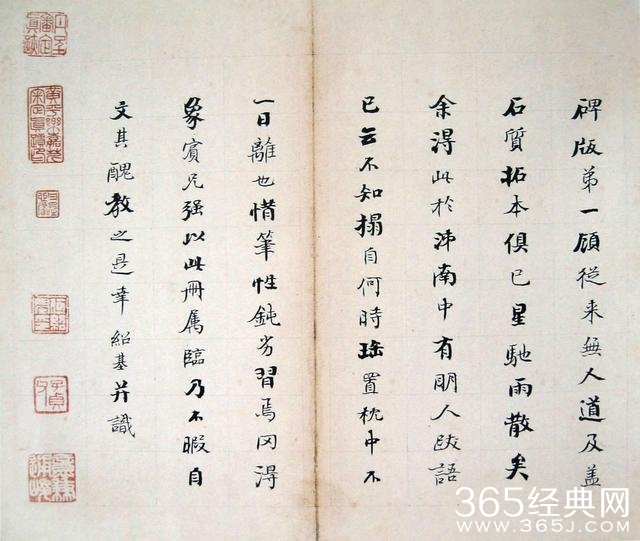 碑版弟一顧從来無人道及盖
石質拓本俱已星馳雨散矣
余淂此於泲南中有明人跋語
已云不知搨自何時珤置枕中不
一日離也惜筆性鈍劣習焉罔淂
象賓兄强以此冊属臨乃不暇自
文其醜教之是幸 紹基并識
子貞
365经典网
www.365J.com